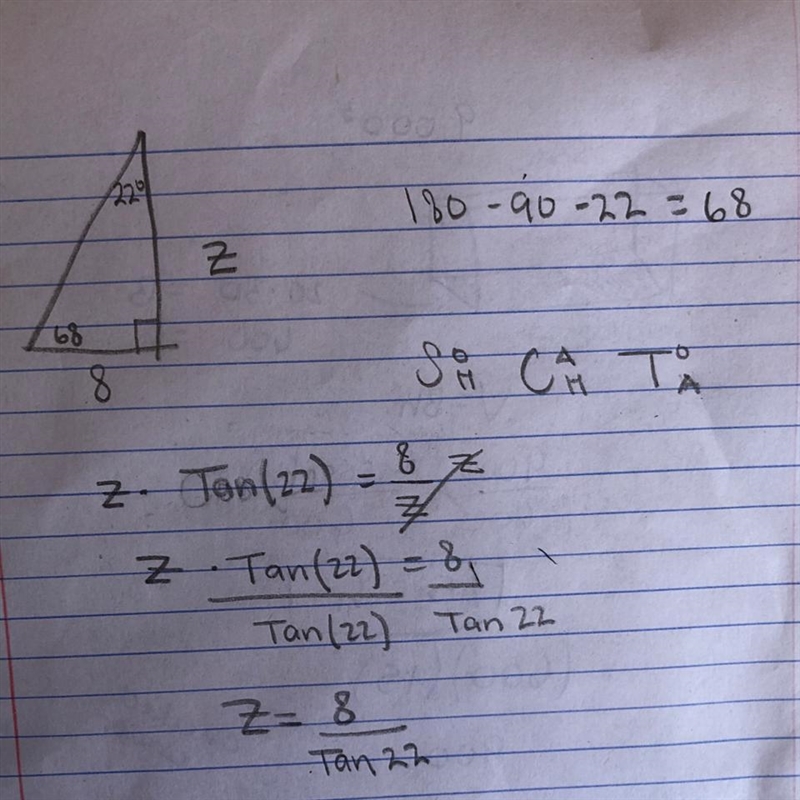 22°
180 - 90 - 22 = 68
z
68
8
S O/H C A/H T O/A
z · Tan(22) = 8/z z
z · Tan(22)/Tan(22) = 8/Tan 22
z = 8/Tan 22